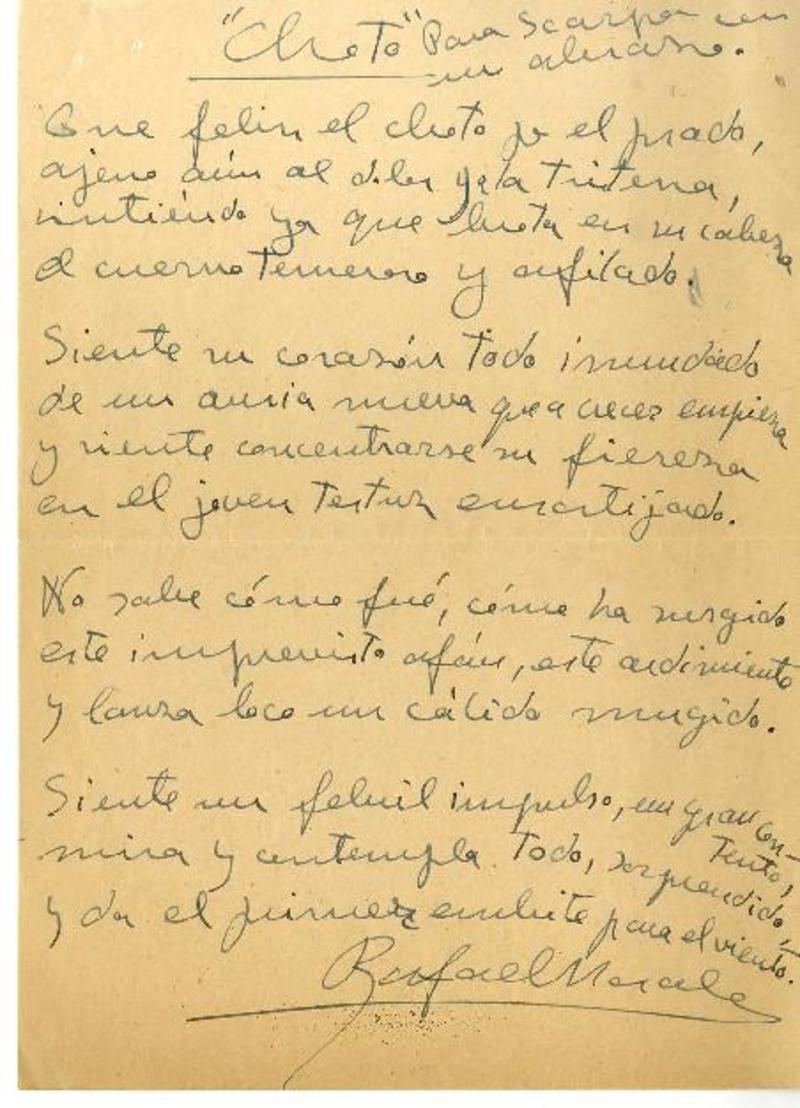 "Choto" Para Scarpa con
un abrazo.
Que feliz el choto po el prado,
ajeno aún al dolor y a la tristeza,
sintiéndo ya que brota en su cabeza
el cuerno temeroso y afilado.
Siente su corazón todo inundado
de un ansia nueva que a crecer empieza
y siente concentrarse su fiereza
en el joven testuz ensortijado.
No sabe cómo fué, cómo ha surgido
este imprevisto afán, este ardimiento
y lanza loco un cálido mugido.
Siente un febril impulso, un gran con-
tento,
mira y contempla todo, sorprendido
y da el primer embite para el viento.
Rafael Morales